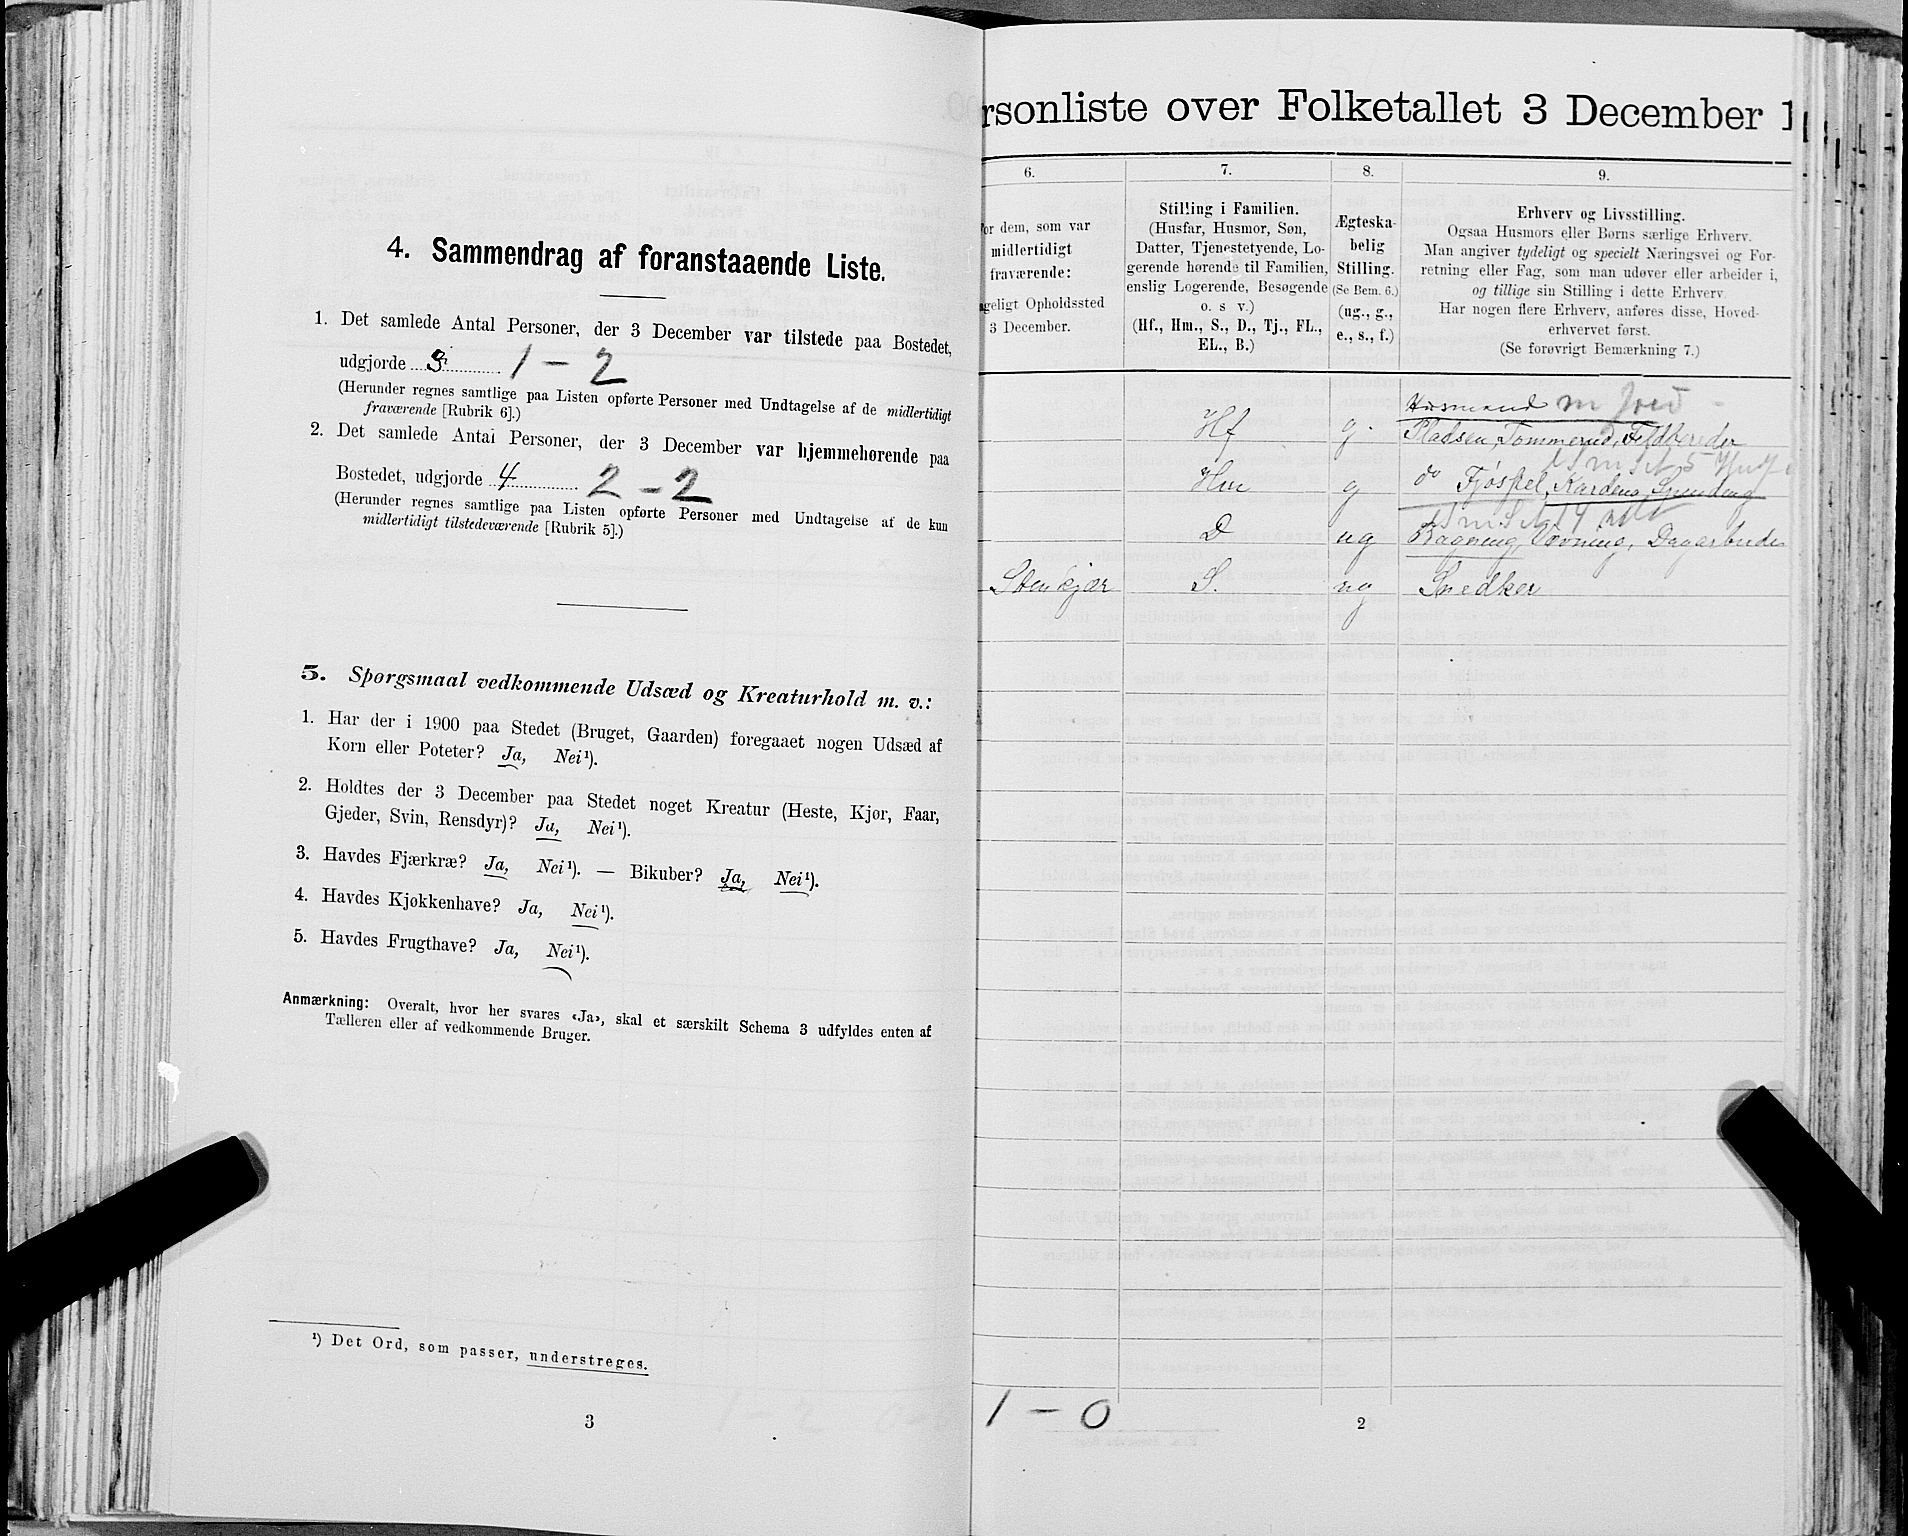 4. Sammendrag af foranstaaende Liste.
1. Det samlede Antal Personer, der 3 December var tilstede paa Bostedet,
udgjorde 3 1 - 2
(Herunder regnes samtlige paa Listen opførte Personer med Undtagelse af de midlertidigt
fraværende [Rubrik 6].)
2. Det samlede Antal Personer, der 3 December var hjemmehørende paa
Bostedet, udgjorde 4 2 - 2
(Herunder regnes samtlige paa Listen opførte Personer med Undtagelse af de kun
midlertidigt tilstedeværende [Rubrik 5].)
5. Spørgsmaal vedkommende Udsæd og Kreaturhold m. v.:
1. Har der i 1900 paa Stedet (Bruget, Gaarden) foregaaet nogen Udsæd af
Korn eller Poteter? Ja, Nei¹).
2. Holdtes der 3 December paa Stedet noget Kreatur (Heste, Kjør, Faar,
Gjeder, Svin, Rensdyr)? Ja, Nei¹).
3. Havdes Fjærkræ? Ja, Nei¹). — Bikuber? Ja, Nei¹).
4. Havdes Kjøkkenhave? Ja, Nei¹).
5. Havdes Frugthave? Ja, Nei¹).
Anmærkning: Overalt, hvor her svares «Ja», skal et særskilt Schema 3 udfyldes enten af
Tælleren eller af vedkommende Bruger.
¹) Det Ord, som passer, understreges.
3
rsonliste over Folketallet 3 December 1
6.
7.
8.
9.
or dem, som var
midlertidigt
fraværende:
geligt Opholdssted
3 December.
Stilling i Familien.
(Husfar, Husmor, Søn,
Datter, Tjenestetyende, Lo-
gerende hørende til Familien,
enslig Logerende, Besøgende
o. s v.)
(Hf., Hm., S., D., Tj., FL.,
EL., B.)
Ægteska-
belig
Stilling.
(Se Bem. 6.)
(ug., g.,
e., s., f.)
Erhverv og Livsstilling.
Ogsaa Husmors eller Børns særlige Erhverv.
Man angiver tydeligt og specielt Næringsvei og For-
retning eller Fag, som man udøver eller arbeider i,
og tillige sin Stilling i dette Erhverv
Har nogen flere Erhverv, anføres disse, Hoved-
erhvervet først.
(Se forøvrigt Bemærkning 7.)
Husmand m Jord
Hf g. Pladsen, Tømmermd,
Hm g do Fjøsstel, Karding, Spinding
D ug Bagning, Vævning, Dagarbeide
Stenkjær S. ug Snedker
1 - 0
2